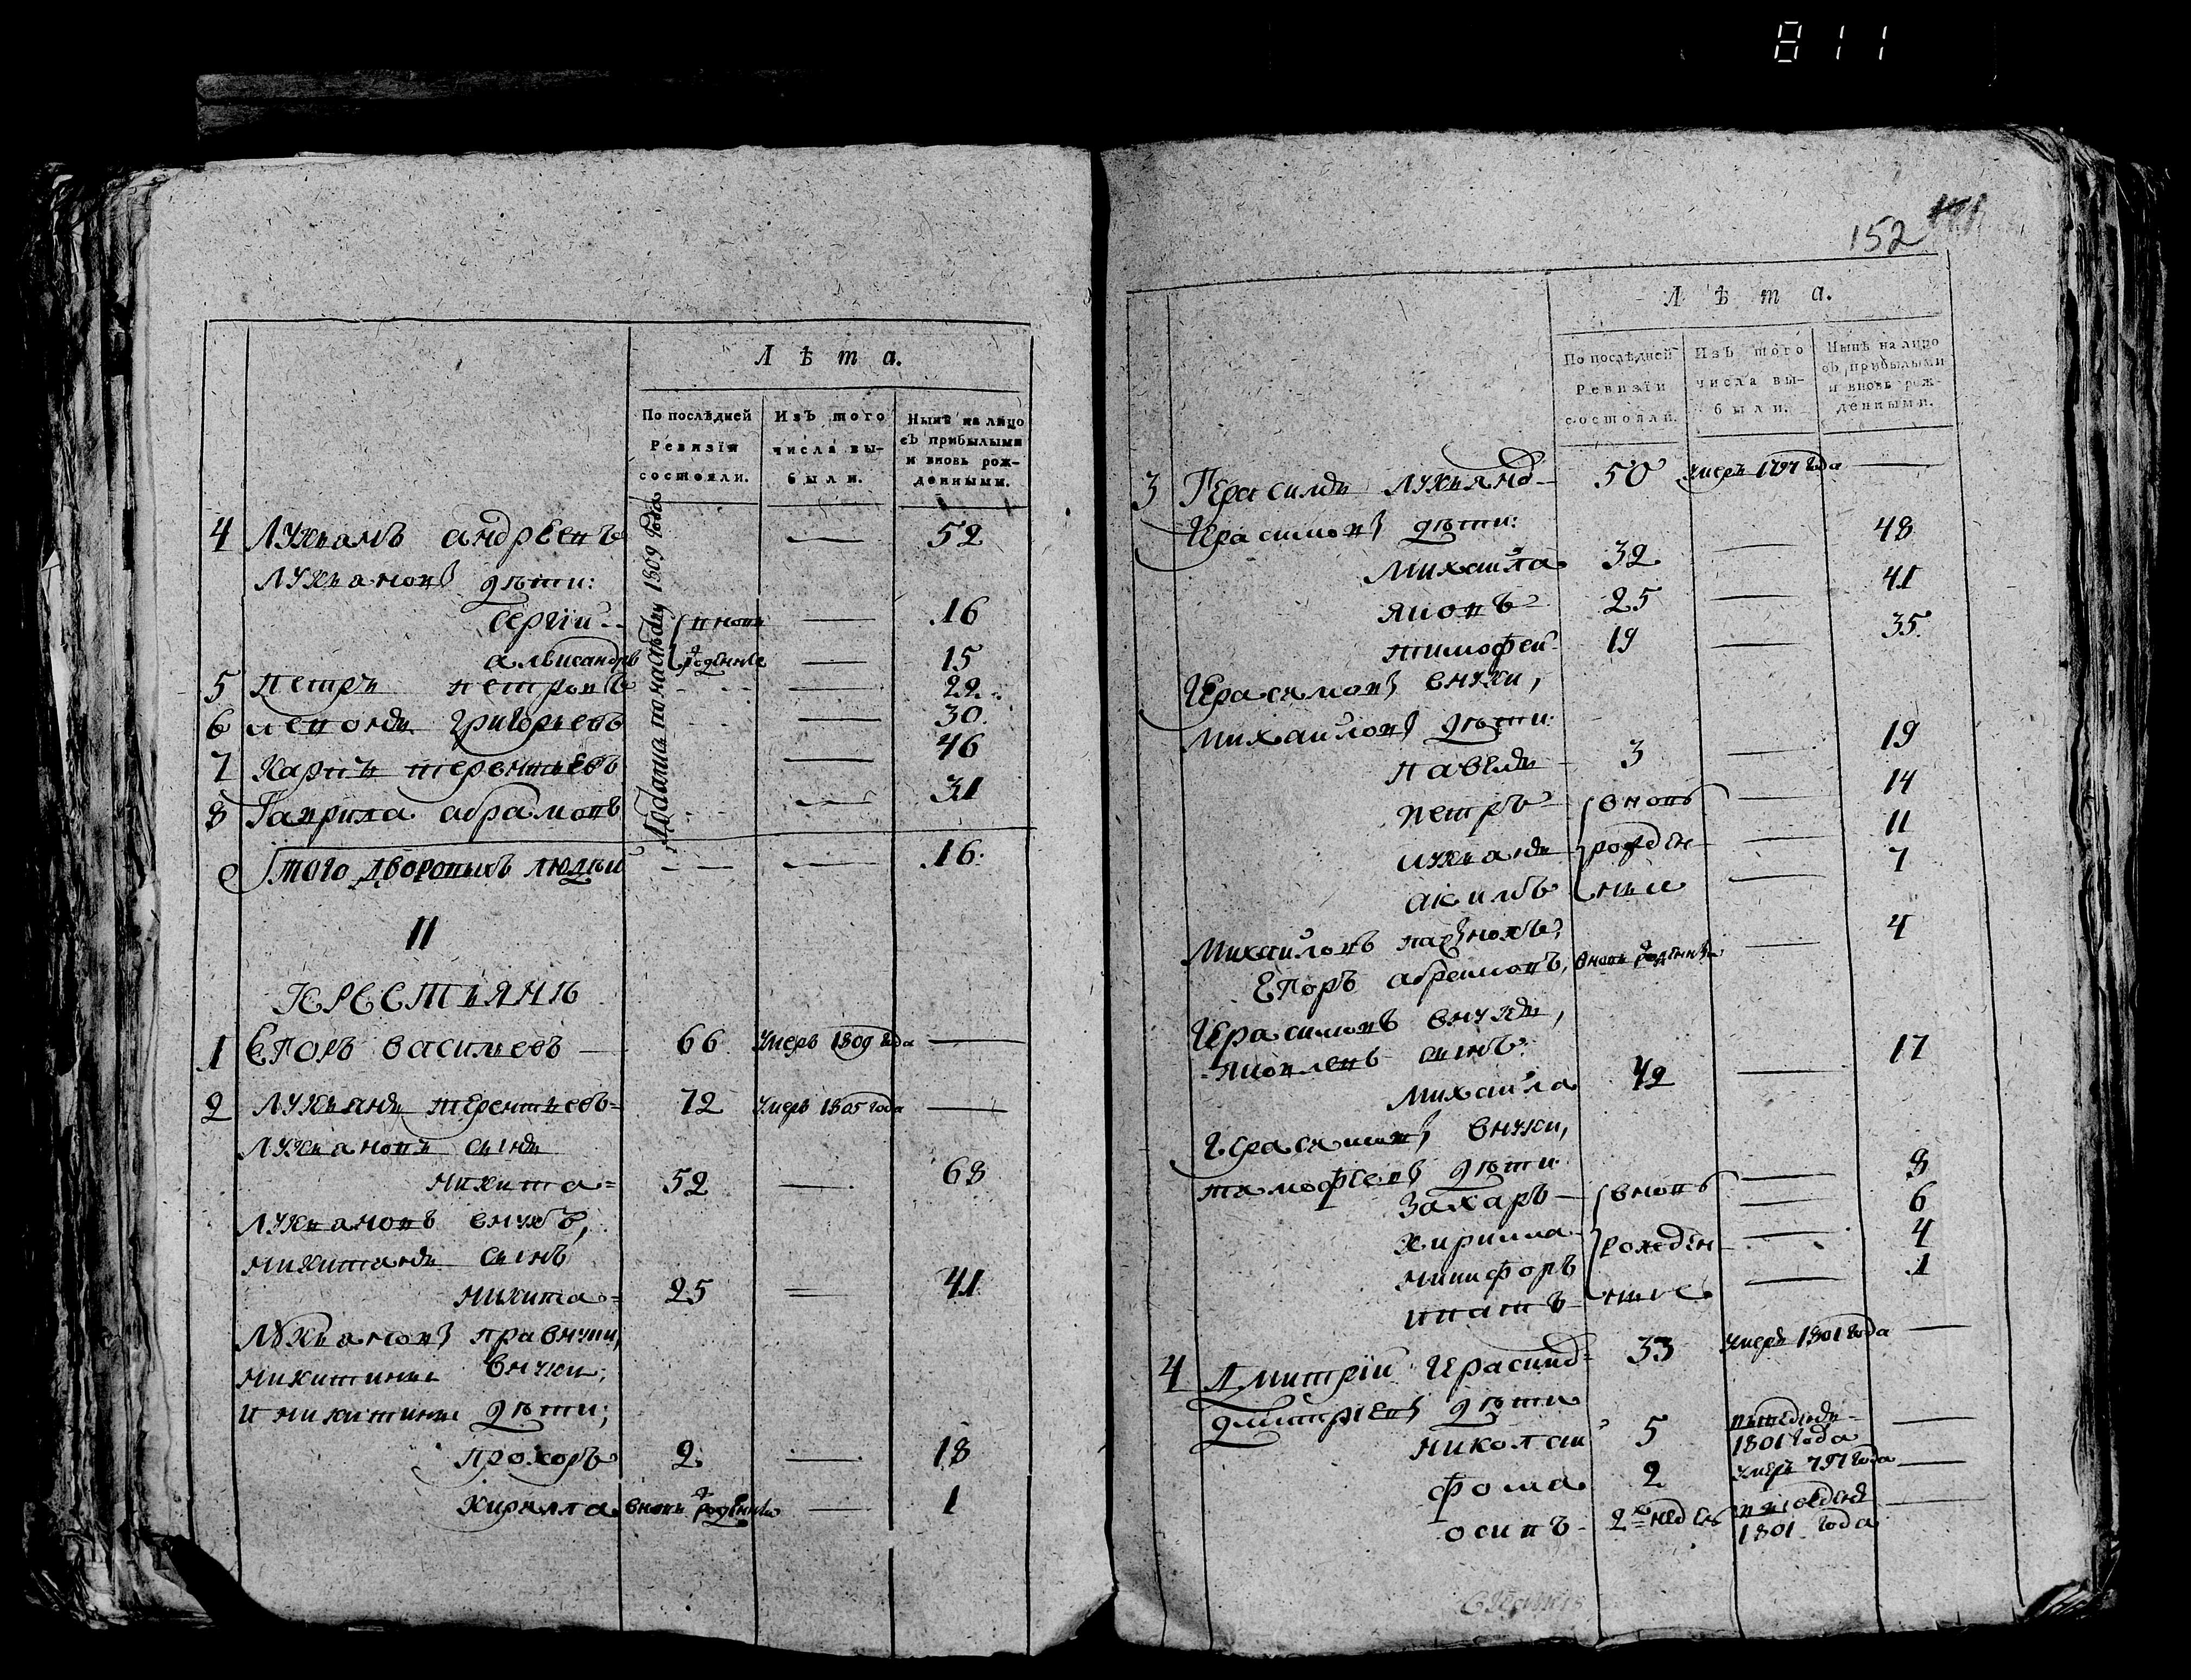 811
Лѣта.
По послѣдней Ревизіи состояли.
Изъ того числа выбыли.
Нынѣ на лицо съ прибылыми и вновь рожденными.
4 Лукьанъ андреевъ — 52
Лукьановы дѣти:
Сергій вновь — 16
александръ рожденные — 15
5 Петръ петровъ — 22
6 григорьевъ — 30
7 Карпъ терентьевъ — 46
8 Гаврила абрамовъ — 31
1809 года
Итого дворовыхъ людей — — 16
II
КРЕСТЬЯНЪ
1 Егоръ васильевъ 66 умеръ 1809 года —
2 Лукьянъ терентьевъ 72 умеръ 1805 года —
Лукьановъ сынъ
никита 52 — 68
Лукьановъ внукъ,
никитинъ сынъ
никита 25 — 41
Лукьановы правнуки,
никитины внуки;
и никитины дѣти;
прохоръ 2 — 18
кирилла вновь рожденный — 1
152
Лѣта.
По послѣдней Ревизіи состояли.
Изъ того числа выбыли.
Нынѣ на лицо съ прибылыми и вновь рожденными.
3 Герасимъ лукьяновъ 50 умеръ 1797 года —
Герасимовы дѣти:
Михайла 32 — 48
яковъ 25 — 41
тимофей 19 — 35
Герасимовы внуки,
михайловы дѣти:
павелъ 3 — 19
петръ вновь — 14
лукьанъ рожден — 11
акимъ ные — 7
Михайловъ
Егоръ абрамовъ, вновь рожденный — 4
Герасимовъ внукъ,
яковлевъ сынъ:
михайла — 17
Герасимовы внуки,
тимофеевы дѣти
Захаръ вновь — 8
кирилла — 6
никифоръ рожден — 4
игнатъ ные — 1
4 Дмитрій Герасимовъ 33 умеръ 1801 года —
дмитріевы дѣти
николай 5 1801 года —
фома 2 умеръ 797 года —
осипъ 2хъ недель 1801 года —